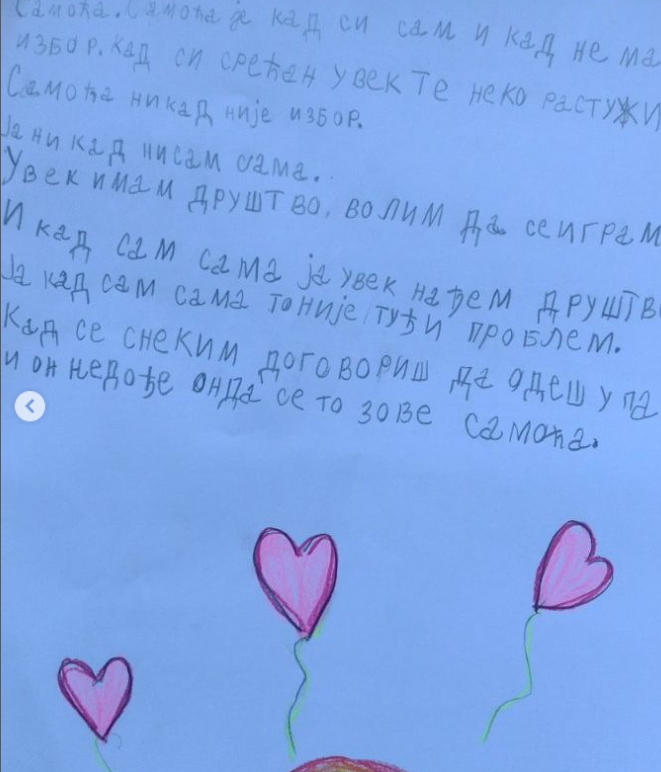 Самоћа. Самоћа је кад си сам и кад не ма
избор. кад си срећан увек те неко растужи
Самоћа никад није избор.
Ја никад нисам сама.
Увек имам друштво, волим да се играм
И кад сам сама ја увек нађем друштв
Ја кад сам сама то није туђи проблем.
Кад се снеким договориш да одеш у па
и он недође онда се то зове самоћа.